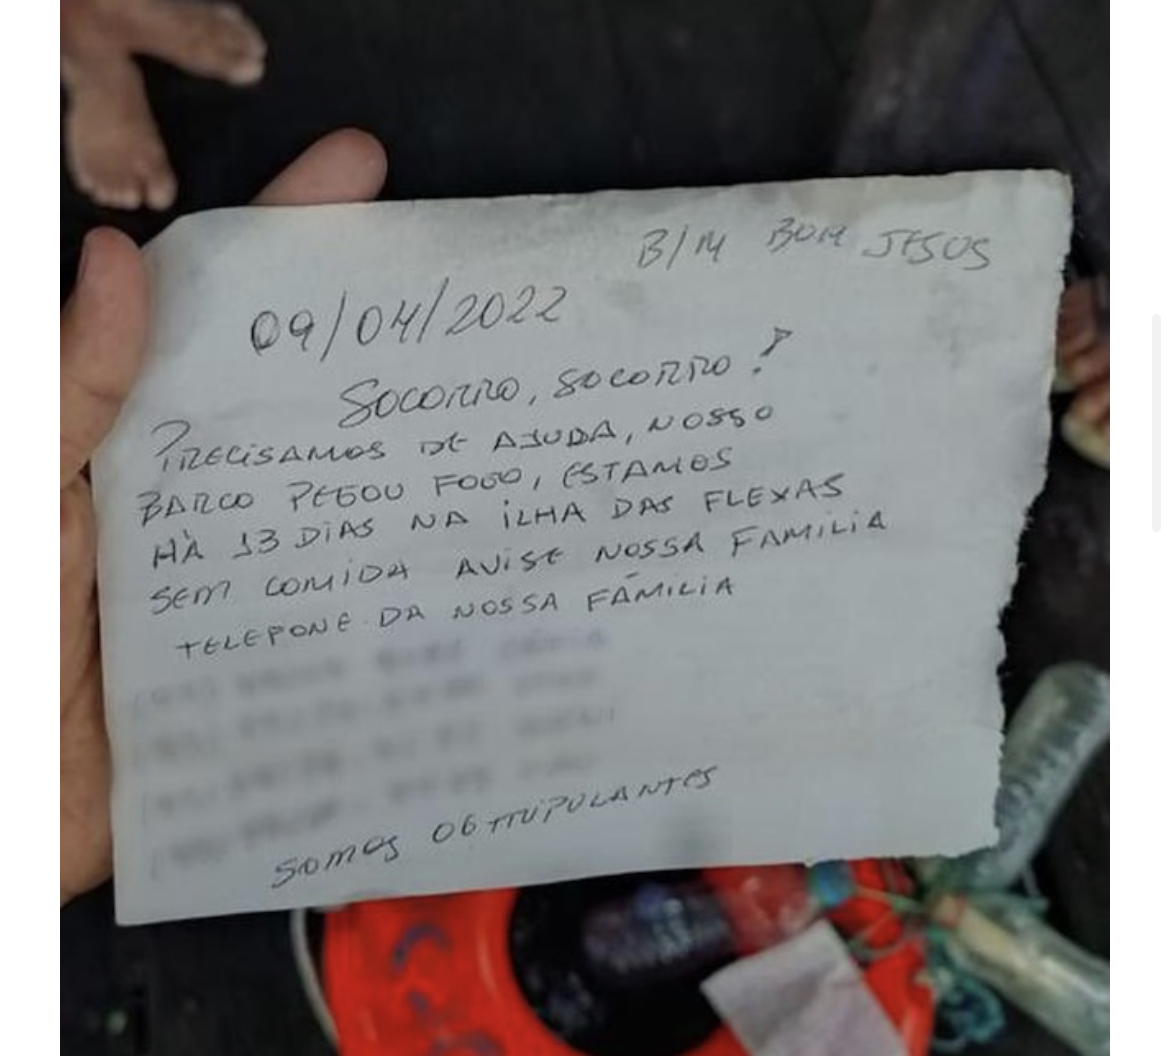 B/M BOM JESUS
09/04/2022
SOCORRO, SOCORRO!
PRECISAMOS DE AJUDA, NOSSO
BARCO PEGOU FOGO, ESTAMOS
HÀ 13 DIAS NA ILHA DAS FLEXAS
SEM COMIDA AVISE NOSSA FAMILIA
TELEFONE DA NOSSA FÃMILIA
SOMOS 06 TRIPULANTES